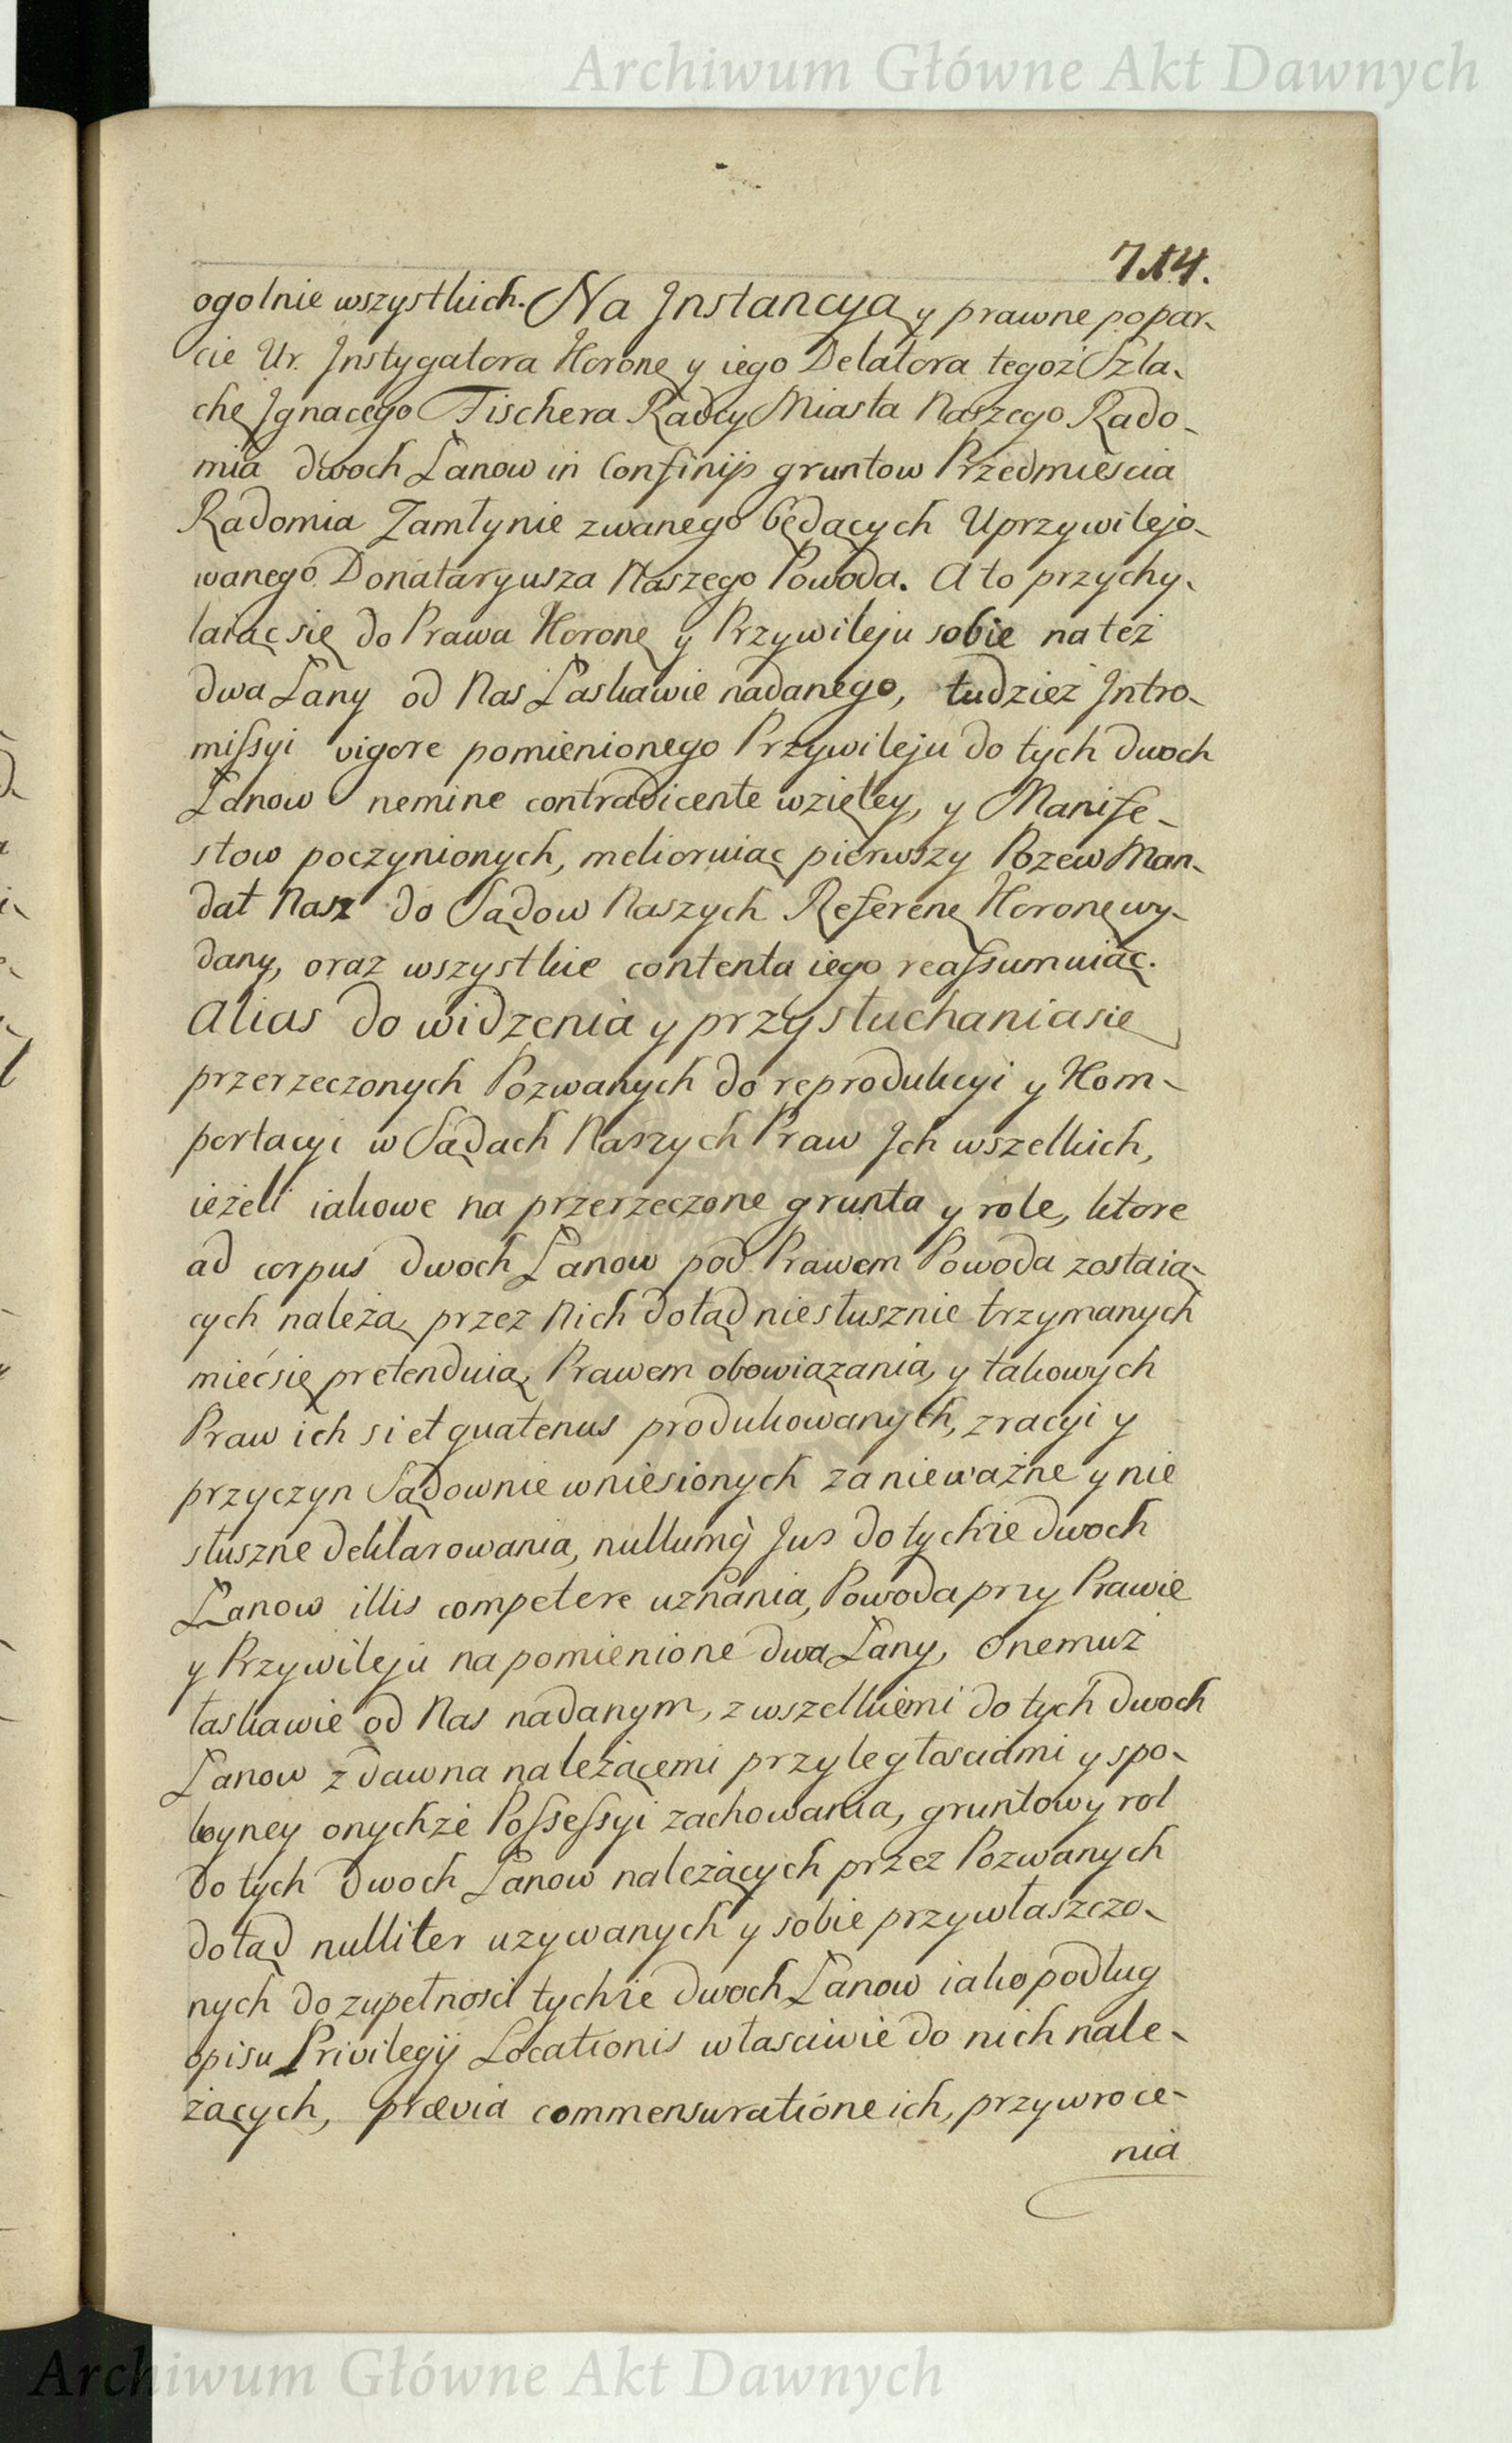 Archiwum Główne Akt Dawnych
714.
ogolnie wszystkich. Na Jnstancyą y prawne popar-
cie Ur. Jnstygatora Koronę y iego Delatora tegoż Szla-
chę Jgnacego Fischera Radcy Miasta Naszego Rado-
mia dwoch Łanow in Confinijs gruntow Przedmieścia
Radomia Zamłynie zwanego będących Uprzywilejo-
wanego Donataryusza Naszego Powoda. A to przychy-
laiąc się do Prawa Koronę y Przywileju sobie na też
dwa Łany od Nas Łaskawie nadanego, tudzież Jntro-
missyi vigore pomienionego Przywileju do tych dwoch
Łanow nemine contradicente wziętey, y Manife-
stow poczynionych, melioruiąc pierwszy Pozew Man-
dat Nasz do Sądow Naszych Referenę Koronę wy-
dany, oraz wszystkie contenta iego reassumuiąc.
Alias do widzenia y przysłuchania się
przerzeczonych Pozwanych do reprodukcyi y Kom-
portacyi w Sądach Naszych Praw Jch wszelkich,
ieżeli iakowe na przerzeczone grunta y role, ktore
ad corpus dwoch Łanow pod Prawem Powoda zostaią-
cych należą, przez Nich dotąd niesłusznie trzymanych
mieć się pretenduią, Prawem obowiązania, y takowych
Praw ich si et quatenus produkowanych, z racyi y
przyczyn Sądownie wniesionych za nieważne y nie
słuszne deklarowania, nullumq̀ Jus do tychże dwoch
Łanow illis competere uznania, Powoda przy Prawie
y Przywileju na pomienione dwa Łany, Onemuż
łaskawie od Nas nadanym, z wszelkiemi do tych dwoch
Łanow z dawna należącemi przyległościami y spo-
koyney onychże Possessyi zachowania, gruntow y rol
do tych dwoch Łanow należących przez Pozwanych
dotąd nulliter uzywanych y sobie przywłaszczo-
nych do zupełności tychże dwoch Łanow iako podług
opisu Privilegij Locationis właściwie do nich nale-
żących, prævia commensuratione ich, przywroce-
nia
Archiwum Główne Akt Dawnych